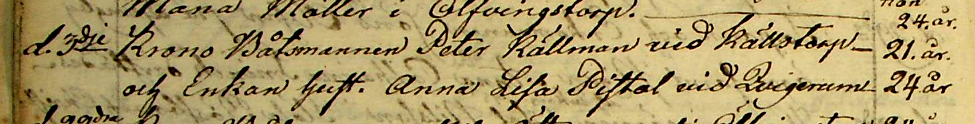 Maria Möller i Elfvingstorp. hon
24. år.
d. 3dje Krono Båtsmannen Peter Källman vid Källstorp 21. år.
och Enkan hust. Anna Lisa Pistol vid Qvigerum 24 år